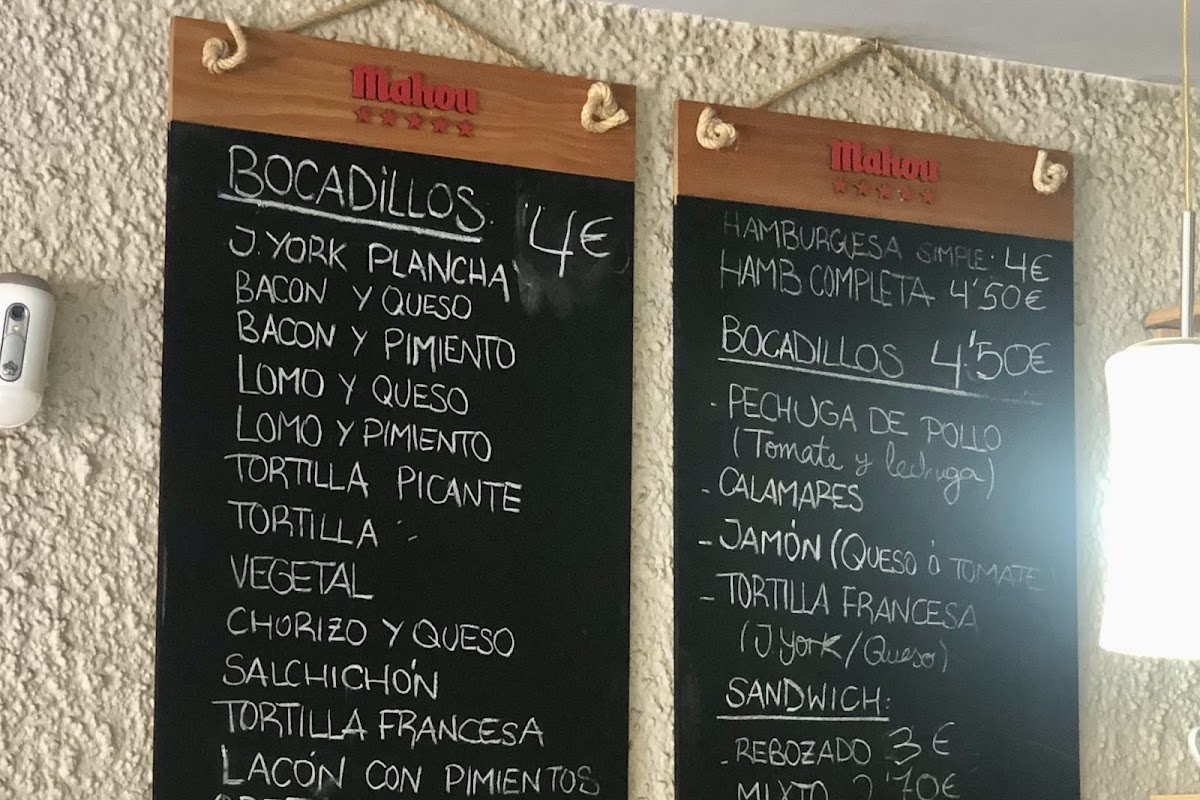 Mahou
BOCADILLOS: 4€
J. YORK PLANCHA
BACON Y QUESO
BACON Y PIMIENTO
LOMO Y QUESO
LOMO Y PIMIENTO
TORTILLA PICANTE
TORTILLA
VEGETAL
CHORIZO Y QUESO
SALCHICHÓN
TORTILLA FRANCESA
LACÓN CON PIMIENTOS
Mahou
HAMBURGUESA SIMPLE: 4€
HAMB COMPLETA 4'50€
BOCADILLOS 4'50€
- PECHUGA DE POLLO
(Tomate y lechuga)
- CALAMARES
- JAMÓN (QUESO Ó TOMATE)
- TORTILLA FRANCESA
(J. York/Queso)
SANDWICH:
- REBOZADO 3€
MIXTO 2'70€